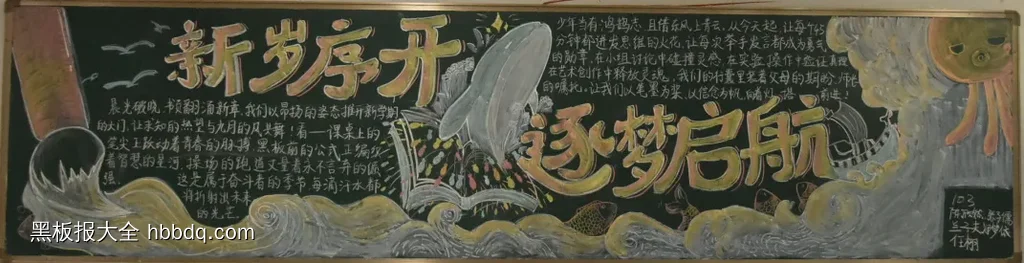 新岁序开
逐梦启航
晨光微曦,书页翻涌着新章,我们以昂扬的姿态推开新学期
的大门,让求知的热望与九月的风共舞!看——课桌上的
光尖上跃动着青春的脉搏,黑板前的公式正编织
着智慧的星河,操场的跑道丈量着永不言弃的诚
这是属于奋斗者的季节,每滴汗水都
将折射成未来
的光芒
少年当有鸿鹄志,且借东风上青云,从今天起,让每个45
分钟都迸发思维的火花,让每次举手发言都成为勇气
的勋章,在小组讨论中碰撞灵感,在实验操作中验证真理
在艺术创作中释放灵魂,我们的行囊里装着父母的期盼,师长
的嘱托,让我们以笔墨为桨,以信念为帆,
103
任栩
黑板报大全 hbbdq.com